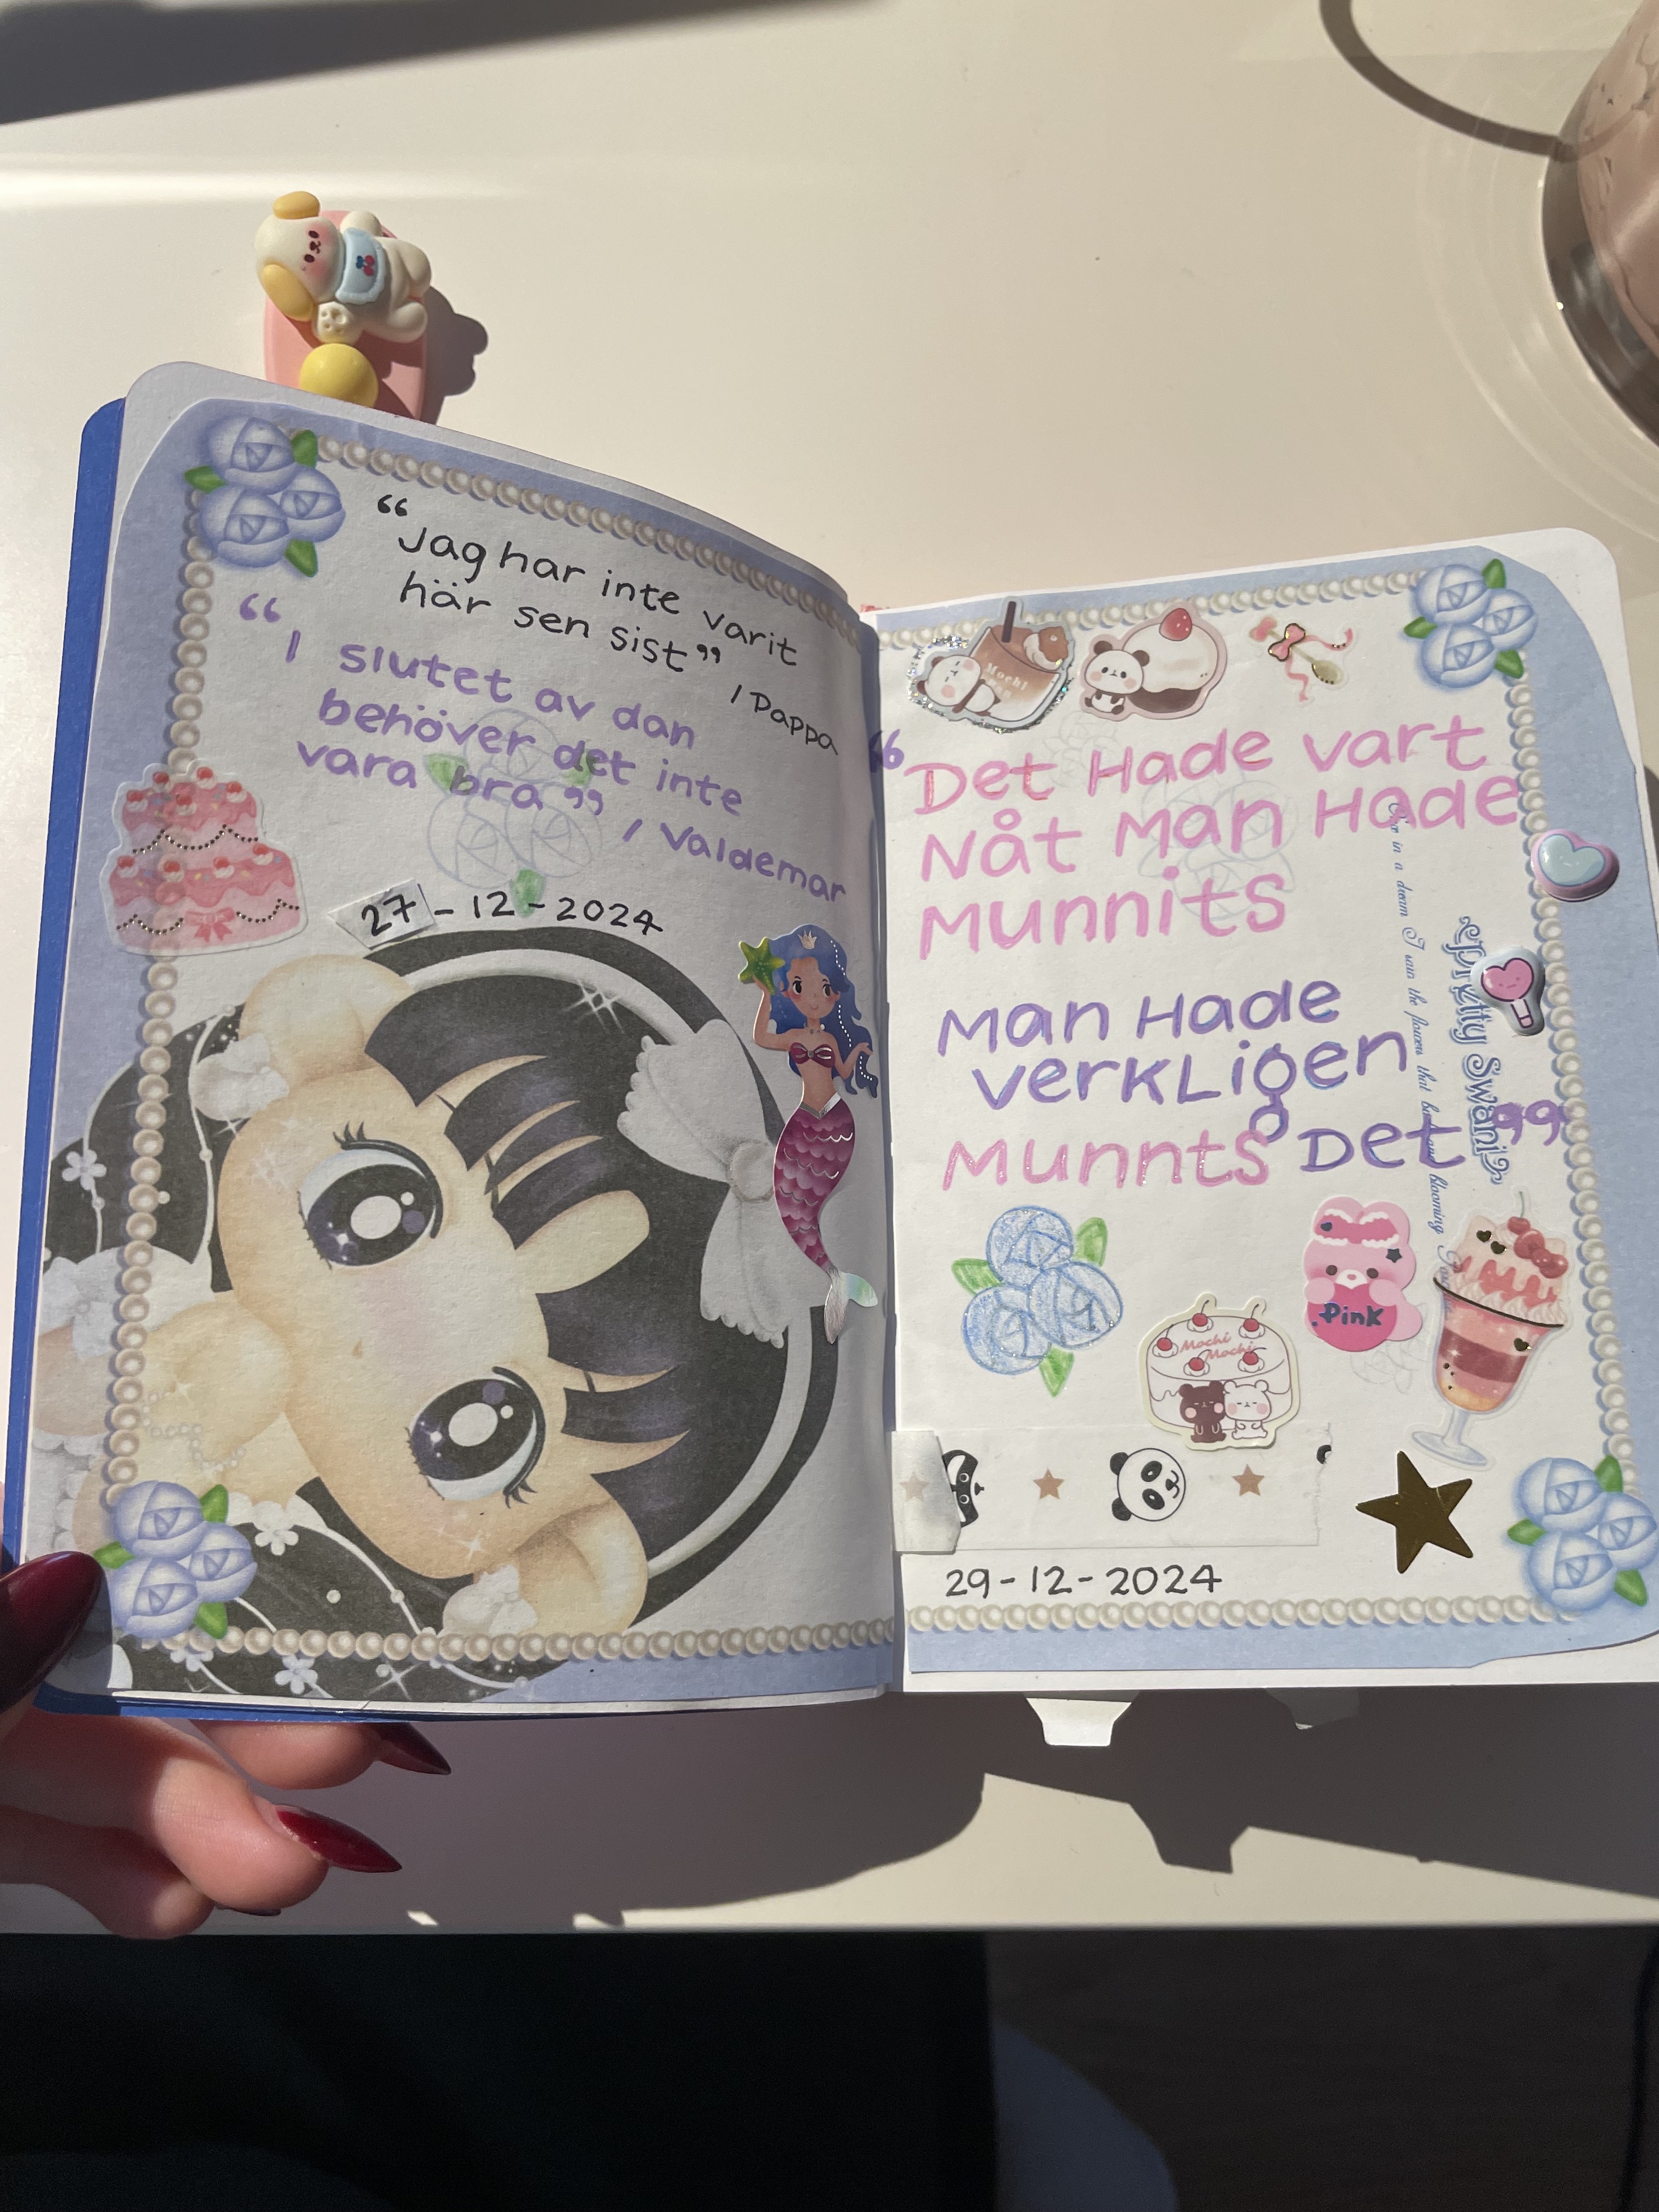 “Jag har inte varit
här sen sist”
/ Pappa
“I slutet av dan
behöver det inte
vara bra” / Valdemar
27-12-2024
Mochi
“Det Hade vart
Nåt Man Hade
Munnits
Man Hade
verkligen
Munnts Det”
pretty Swan
in a dream I am the flower that
blooming
Pink
Mochi
Mochi
29-12-2024